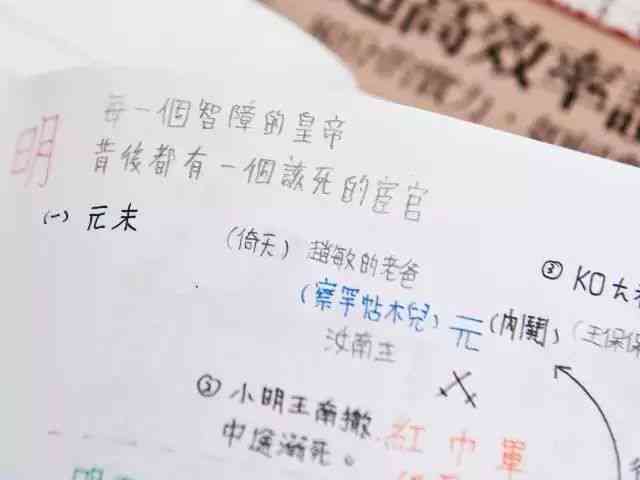 超高效率
明
每一個智障的皇帝
背後都有一個該死的宦官
(一) 元末
(倚天) 趙敏的老爸
(察罕帖木兒) 元 (內鬨) (王保保
汝南王
③ KO大
③ 小明王南撤
中途溺死。
紅巾軍